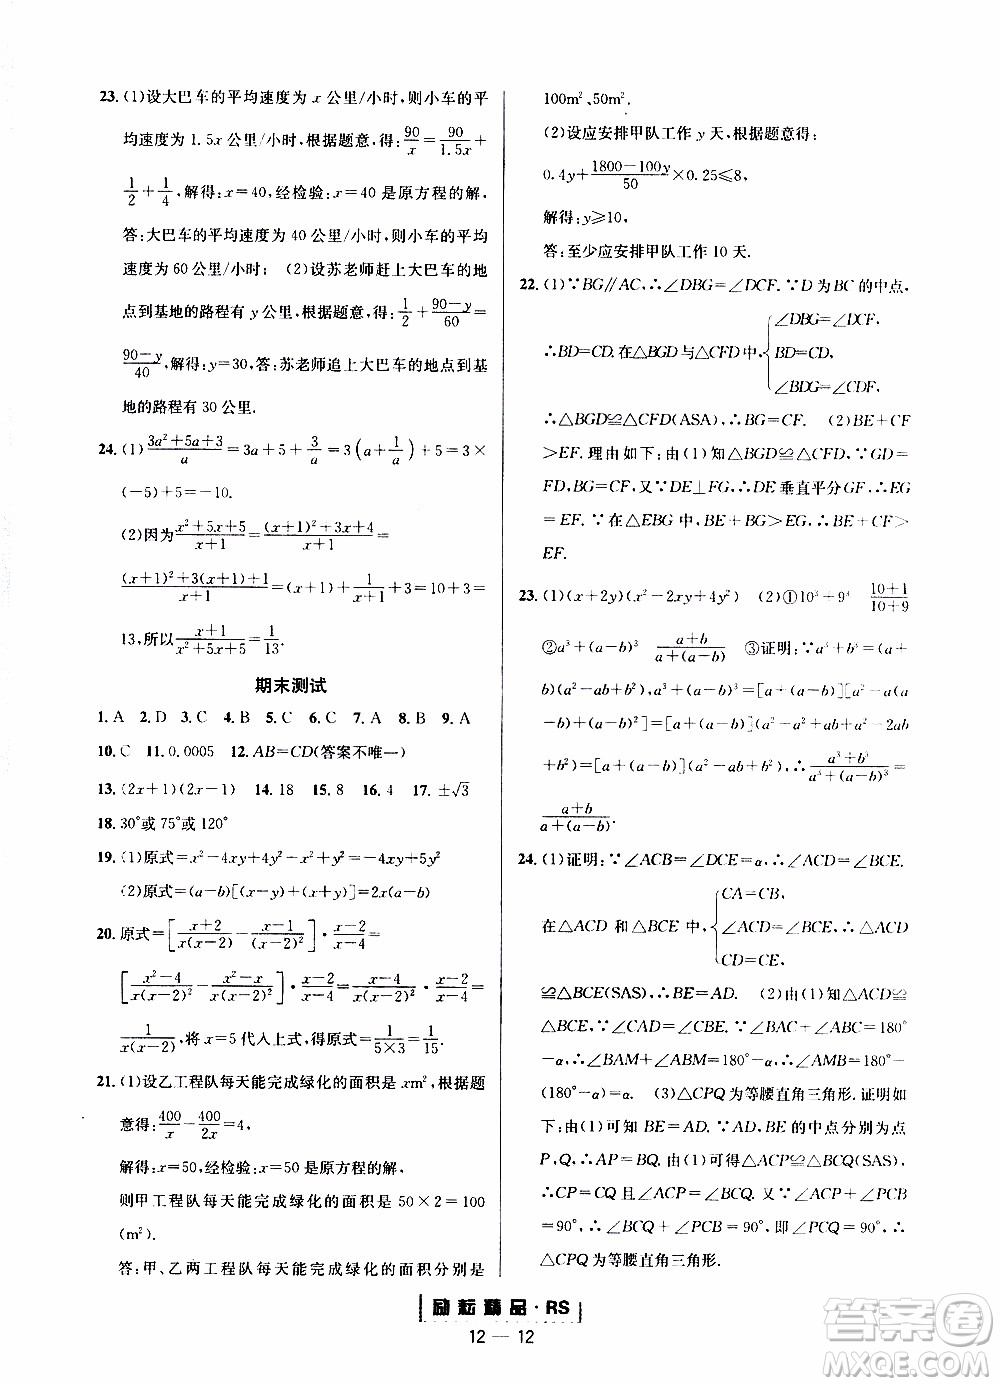 23. (1)设大巴车的平均速度为 x 公里/小时,则小车的平
均速度为 1.5x 公里/小时,根据题意,得:90/x=90/1.5x+
1/2+1/4,解得:x=40,经检验:x=40 是原方程的解.
答:大巴车的平均速度为 40 公里/小时,则小车的平均
速度为 60 公里/小时; (2)设苏老师赶上大巴车的地
点到基地的路程有 y 公里,根据题意得:1/2+(90-y)/60=
(90-y)/40,解得:y=30,答:苏老师追上大巴车的地点到基
地的路程有 30 公里.
24. (1)(3a²+5a+3)/a=3a+5+3/a=3(a+1/a)+5=3×
(-5)+5=-10.
(2)因为(x²+5x+5)/(x+1)=((x+1)²+3x+4)/(x+1)=
((x+1)²+3(x+1)+1)/(x+1)=(x+1)+1/(x+1)+3=10+3=
13,所以(x+1)/(x²+5x+5)=1/13.
期末测试
1. A 2. D 3. C 4. B 5. C 6. C 7. A 8. B 9. A
10. C 11. 0.0005 12. AB=CD(答案不唯一)
13. (2x+1)(2x-1) 14. 18 15. 8 16. 4 17. ±√3
18. 30°或 75°或 120°
19. (1)原式=x²-4xy+4y²-x²+y²=-4xy+5y²
(2)原式=(a-b)[(x-y)+(x+y)]=2x(a-b)
20. 原式=[(x+2)/(x(x-2))-(x-1)/(x-2)²]·(x-2)/(x-4)=
[(x²-4)/(x(x-2)²)-(x²-x)/(x(x-2)²)]·(x-2)/(x-4)=(x-4)/(x(x-2)²)·(x-2)/(x-4)=
1/(x(x-2)),将 x=5 代入上式,得原式=1/(5×3)=1/15.
21. (1)设乙工程队每天能完成绿化的面积是 xm²,根据题
意得:400/x-400/2x=4,
解得:x=50,经检验:x=50 是原方程的解,
则甲工程队每天能完成绿化的面积是 50×2=100
(m²).
答:甲、乙两工程队每天能完成绿化的面积分别是
100m²、50m².
(2)设应安排甲队工作 y 天,根据题意得:
0.4y+(1800-100y)/50×0.25≤8,
解得:y≥10,
答:至少应安排甲队工作 10 天.
22. (1)∵BG∥AC,∴∠DBG=∠DCF.∵D 为 BC 的中点,
∠DBG=∠DCF,
∴BD=CD.在△BGD 与△CFD 中,{BD=CD,
∠BDG=∠CDF,
∴△BGD≌△CFD(ASA),∴BG=CF. (2)BE+CF
>EF.理由如下:由(1)知△BGD≌△CFD,∴GD=
FD,BG=CF,又∵DE⊥FG,∴DE 垂直平分 GF,∴EG
=EF.∵在△EBG 中,BE+BG>EG,∴BE+CF>
EF.
23. (1)(x+2y)(x²-2xy+4y²) (2)①10³+9³ (10+1)/(10+9)
②a³+b³=(a+b)(a²-ab+b²),a³+(a-b)³ (a+b)/(a+(a-b)) ③证明:∵a³+b³=(a+
b)(a²-ab+b²),a³+(a-b)³=[a+(a-b)][a²-a(a
-b)+(a-b)²]=[a+(a-b)](a²-a²+ab+a²-2ab
+b²)=[a+(a-b)](a²-ab+b²),∴(a³+b³)/(a³+(a-b)³)=
(a+b)/(a+(a-b)).
24. (1)证明:∵∠ACB=∠DCE=α,∴∠ACD=∠BCE.
CA=CB,
在△ACD 和△BCE 中,{∠ACD=∠BCE,∴△ACD
CD=CE,
≌△BCE(SAS),∴BE=AD. (2)由(1)知△ACD≌
△BCE,∴∠CAD=∠CBE.∵∠BAC+∠ABC=180°
-α,∴∠BAM+∠ABM=180°-α,∴∠AMB=180°-
(180°-α)=α. (3)△CPQ 为等腰直角三角形.证明如
下:由(1)可知 BE=AD.∵AD,BE 的中点分别为点
P,Q,∴AP=BQ.由(1)可得△ACP≌△BCQ(SAS),
∴CP=CQ 且∠ACP=∠BCQ.又∵∠ACP+∠PCB
=90°,∴∠BCQ+∠PCB=90°,即∠PCQ=90°,∴
△CPQ 为等腰直角三角形.
励耘精品·RS
12 — 12
答案圈
MXQE.COM